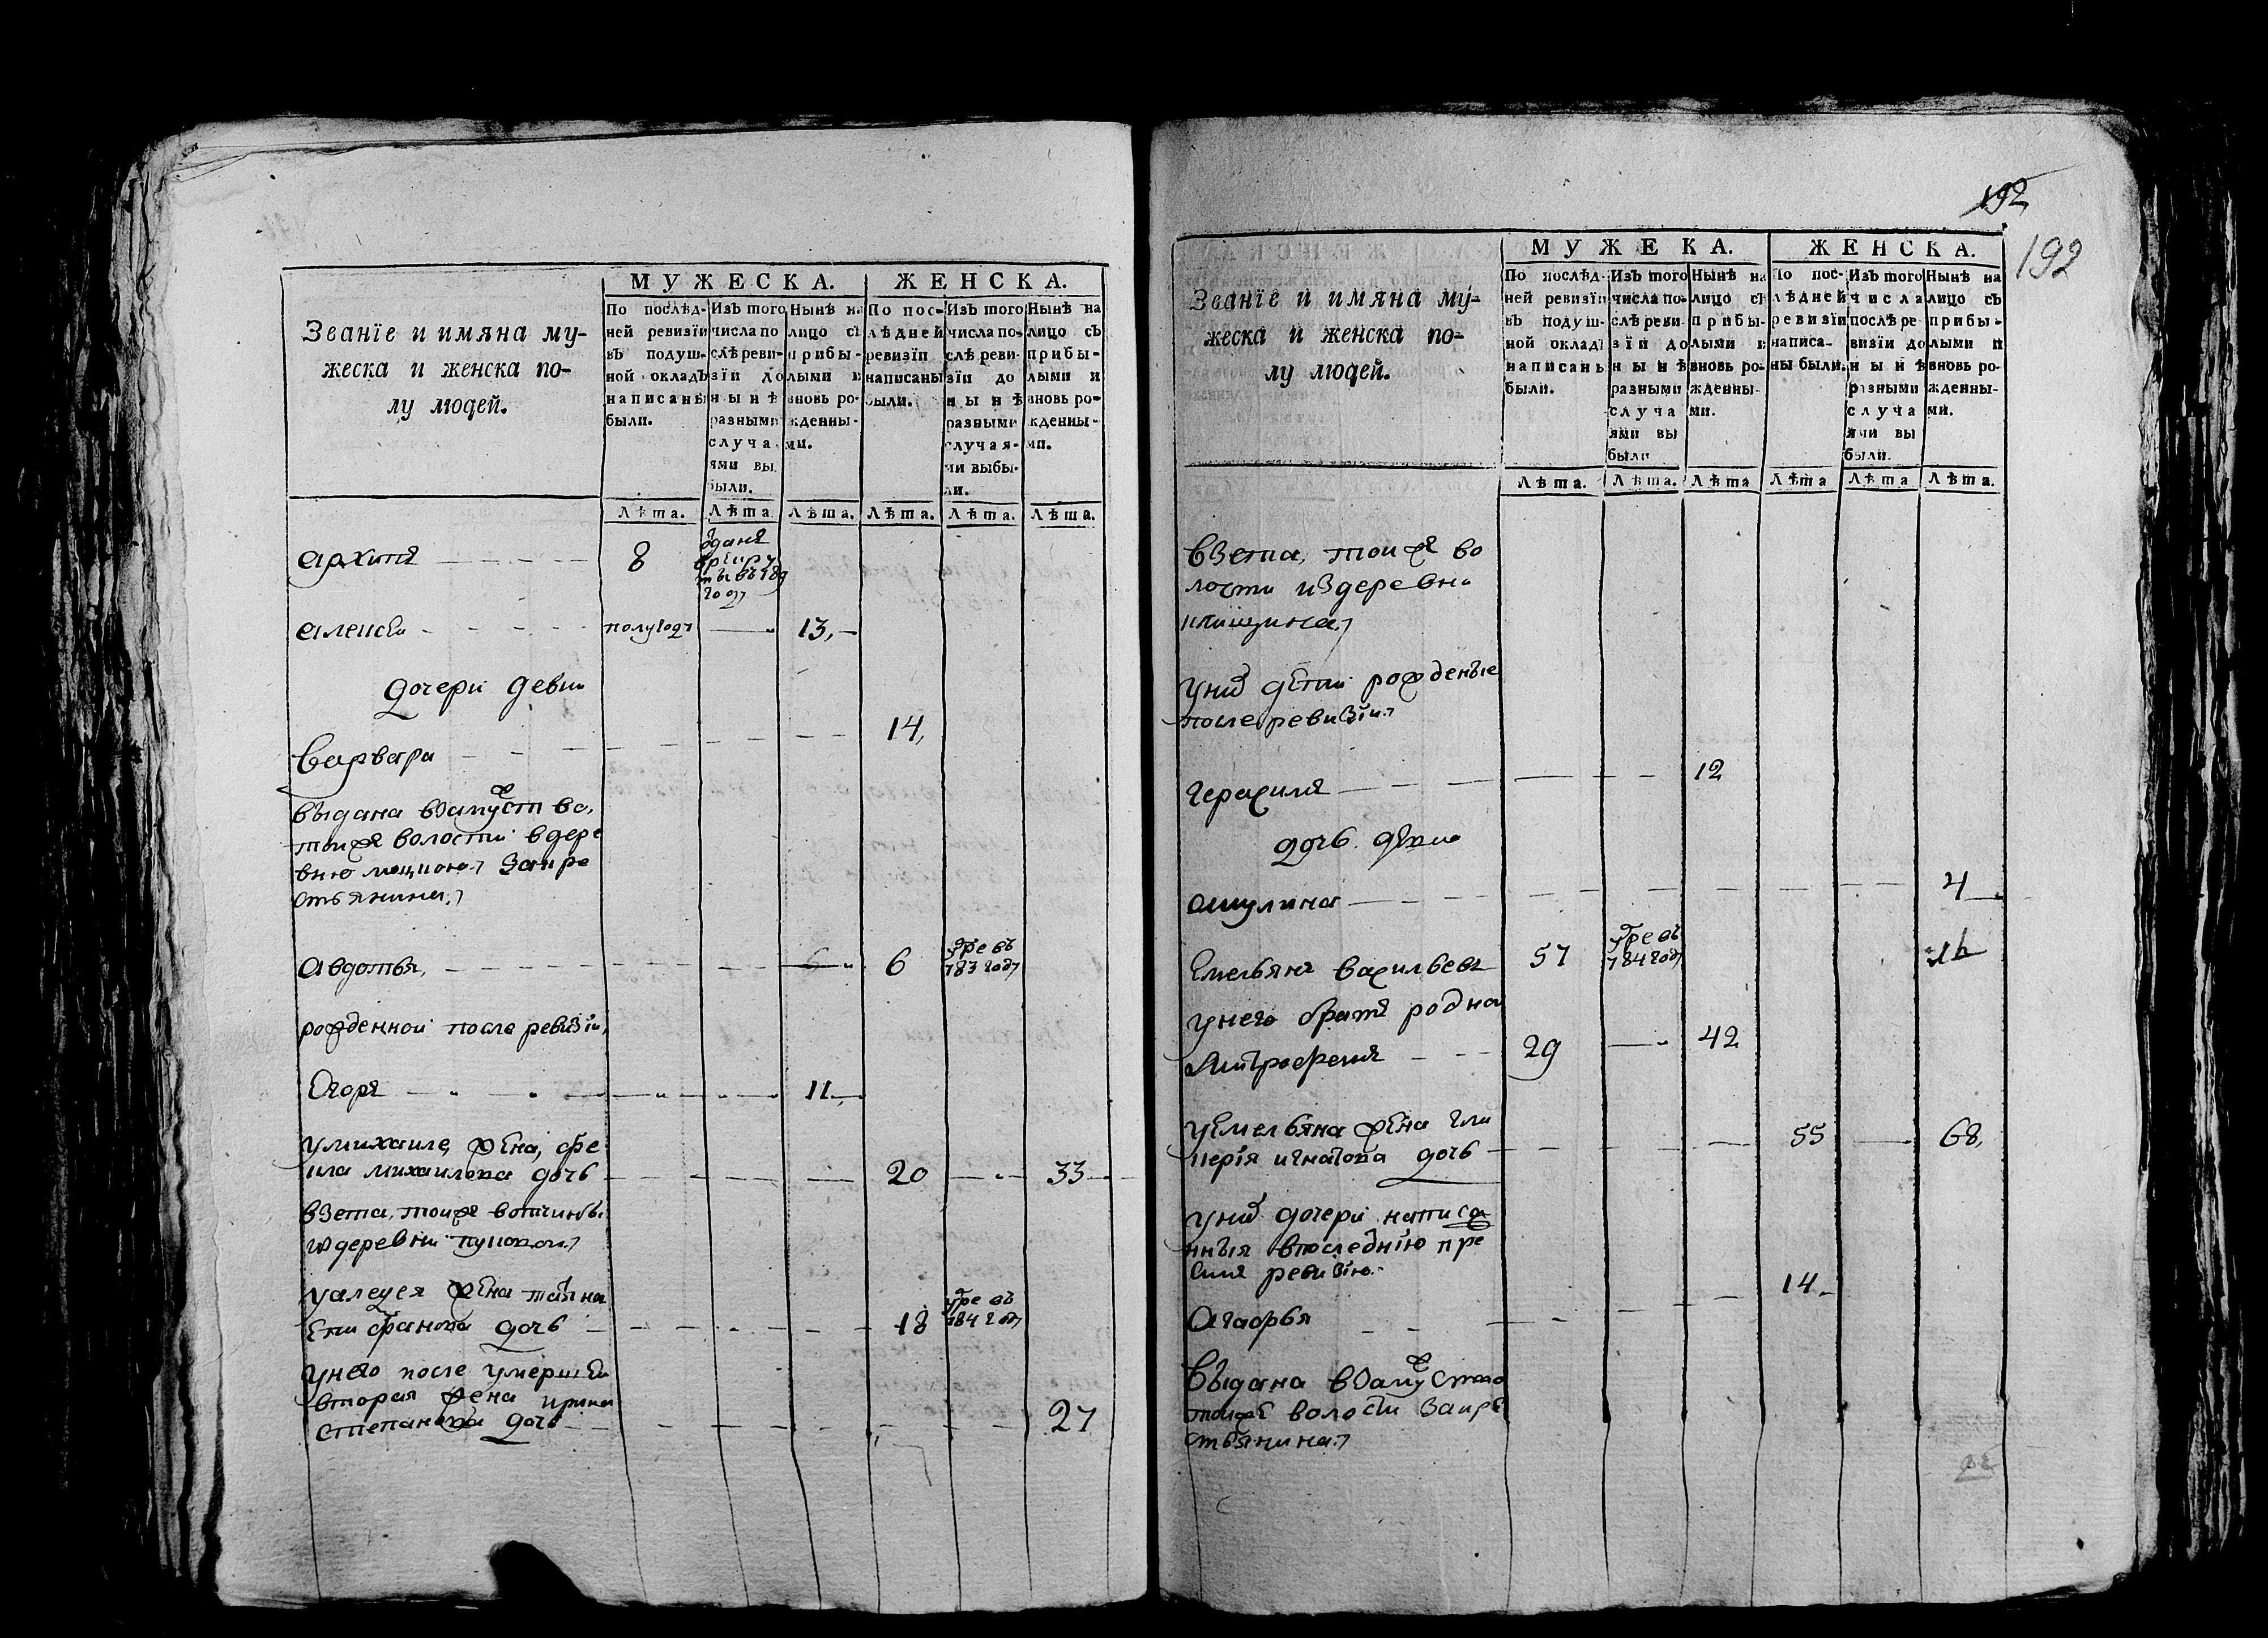 Званїе и имяна му-
жеска и женска по-
лу людей.
МУЖЕСКА.
ЖЕНСКА.
По послѣд-
ней ревизїи
въ подуш-
ной окладъ
написаны
были.
Изъ того
числа по
слѣ реви-
зїи до
нынѣ
разными
случа-
ями вы
были.
Нынѣ на
лицо съ
прибы-
лыми и
вновь ро-
жденны-
ми.
По пос-
лѣдней
ревизїи
написаны
были.
Изъ того
числа по-
слѣ реви-
зїи до
нынѣ
разными
случая-
ми выбы-
ли.
Нынѣ на
лицо съ
прибы-
лыми и
вновь ро-
жденны-
ми.
Лѣта. Лѣта. Лѣта. Лѣта. Лѣта. Лѣта.
архипъ 8
полугоду 13
дочери девки
варвара 14
выдана взамужство
тоиже волости вдере
вню закре
стьянина
Авдотья 6 умре въ
783 году
рожденной после ревизiи
Егоръ 11
умихаила жена, фе
кла михаилова дочь 20 33
взета, тоиже вотчины
издеревни
жена татьяна
епифанова дочь 18 умре въ
784 году
унего после умершеи
вторая жена ирина
степанова дочь 27
192
192
Званїе и имяна му-
жеска и женска по-
лу людей.
МУЖЕКА.
ЖЕНСКА.
По послѣд-
ней ревизїи
въ подуш-
ной окладъ
написаны
были.
Изъ того
числа по-
слѣ реви-
зїи до
нынѣ
разными
случа
ями вы
были
Нынѣ на
лицо съ
прибы-
лыми и
вновь ро-
жденны-
ми.
По пос-
лѣдней
ревизїи
написа-
ны были.
Изъ того
числа
послѣ ре-
визїи до
нынѣ
разными
случа
ями вы
были.
Нынѣ на
лицо съ
прибы-
лыми и
вновь ро-
жденны-
ми.
Лѣта. Лѣта. Лѣта Лѣта Лѣта Лѣта.
взета, тоиже во
лости издеревни
уних дети рожденые
после ревизiи
герасимъ 12
дочь девка
акулина 4
Емельянъ васильевъ 57 умре въ
784 году
унего братъ родна
митрофанъ 29 42
уемельяна жена гли
керiя игнатова дочь 55 68
уних дочери написа
нныя впоследнiю пре
ревизiю
Агафья 14
выдана взамужство
тоиже волости закре
стьянина